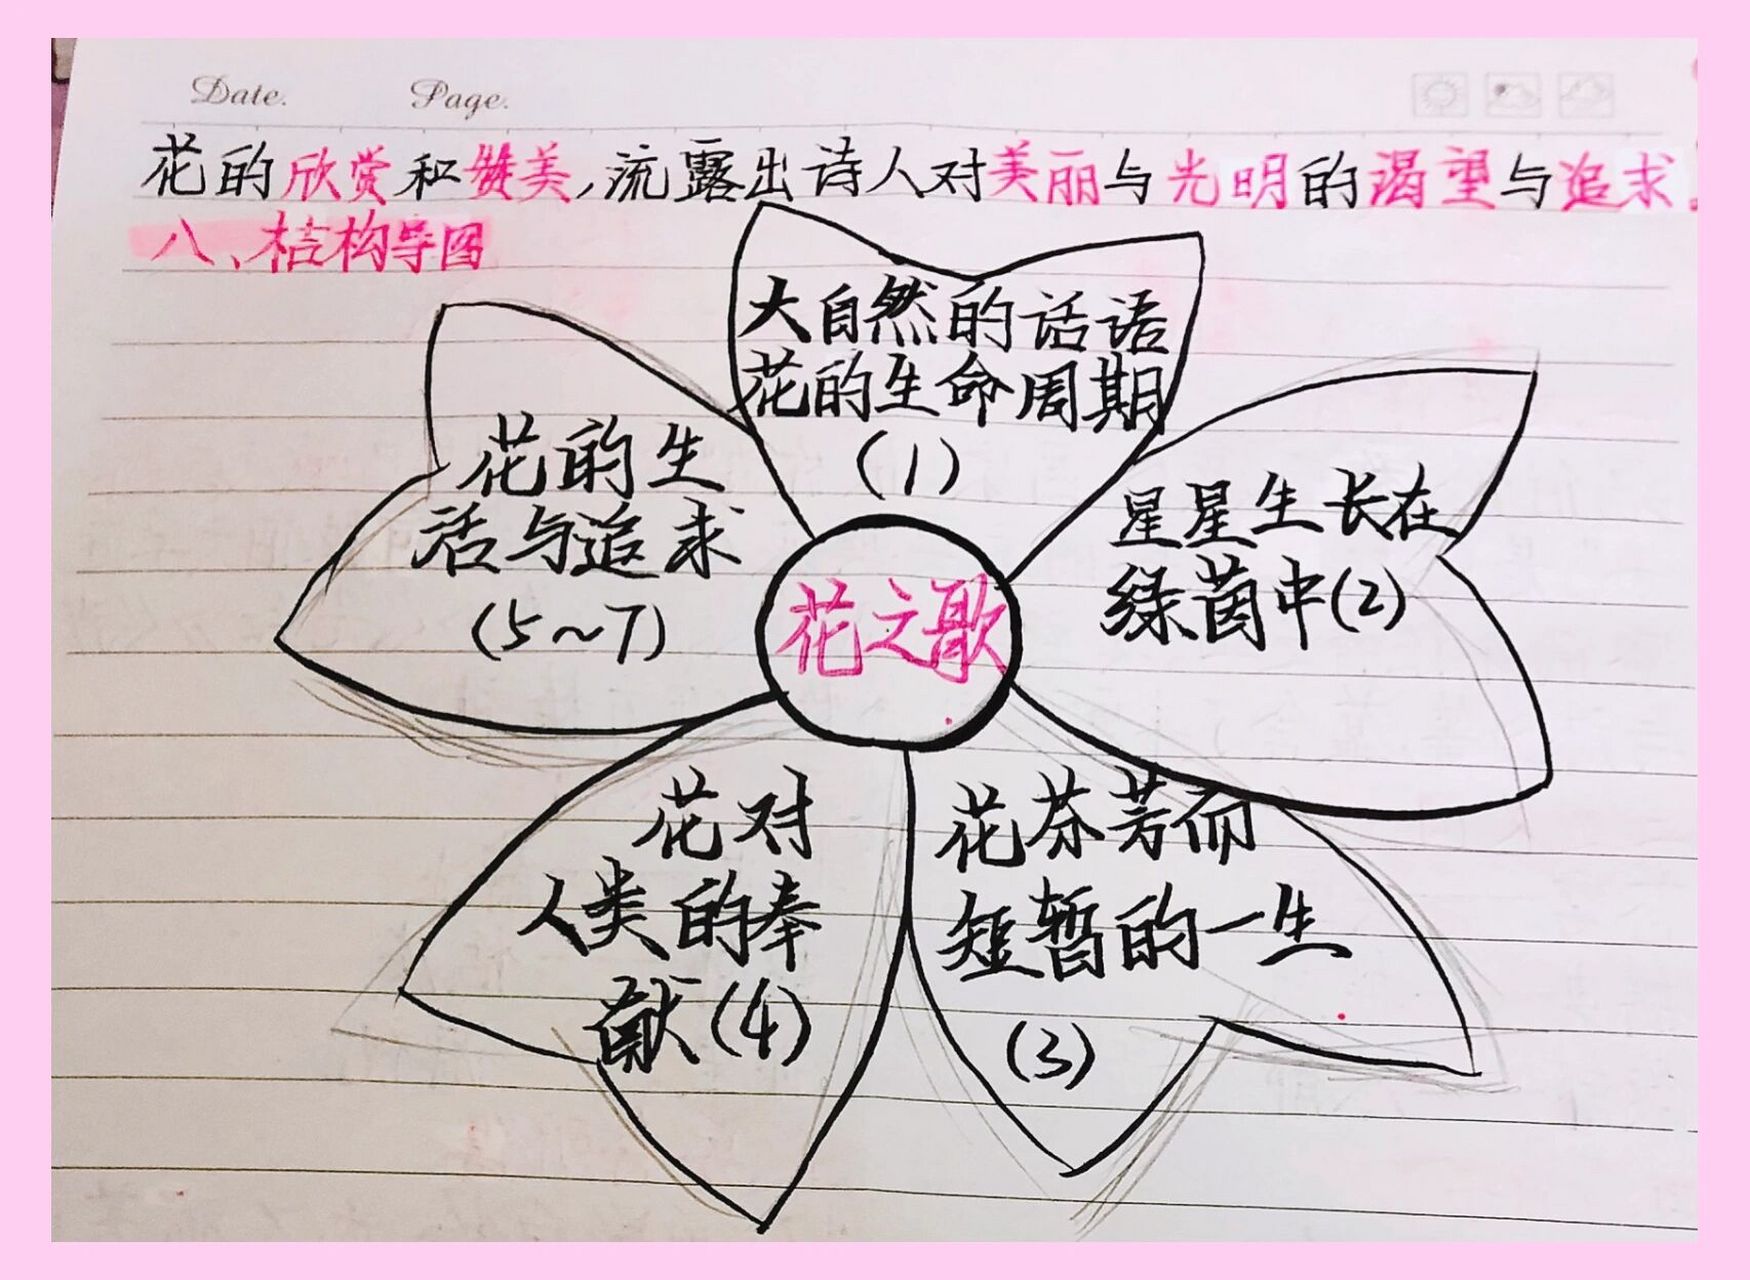 Date. Page.
花的欣赏和赞美,流露出诗人对美丽与光明的渴望与追求.
八、结构导图
大自然的话语
花的生命周期
(1)
星星生长在
绿茵中(2)
花芬芳而
短暂的一生
(3)
花对
人类的奉
献(4)
花的生
活与追求
(5~7)
花之歌